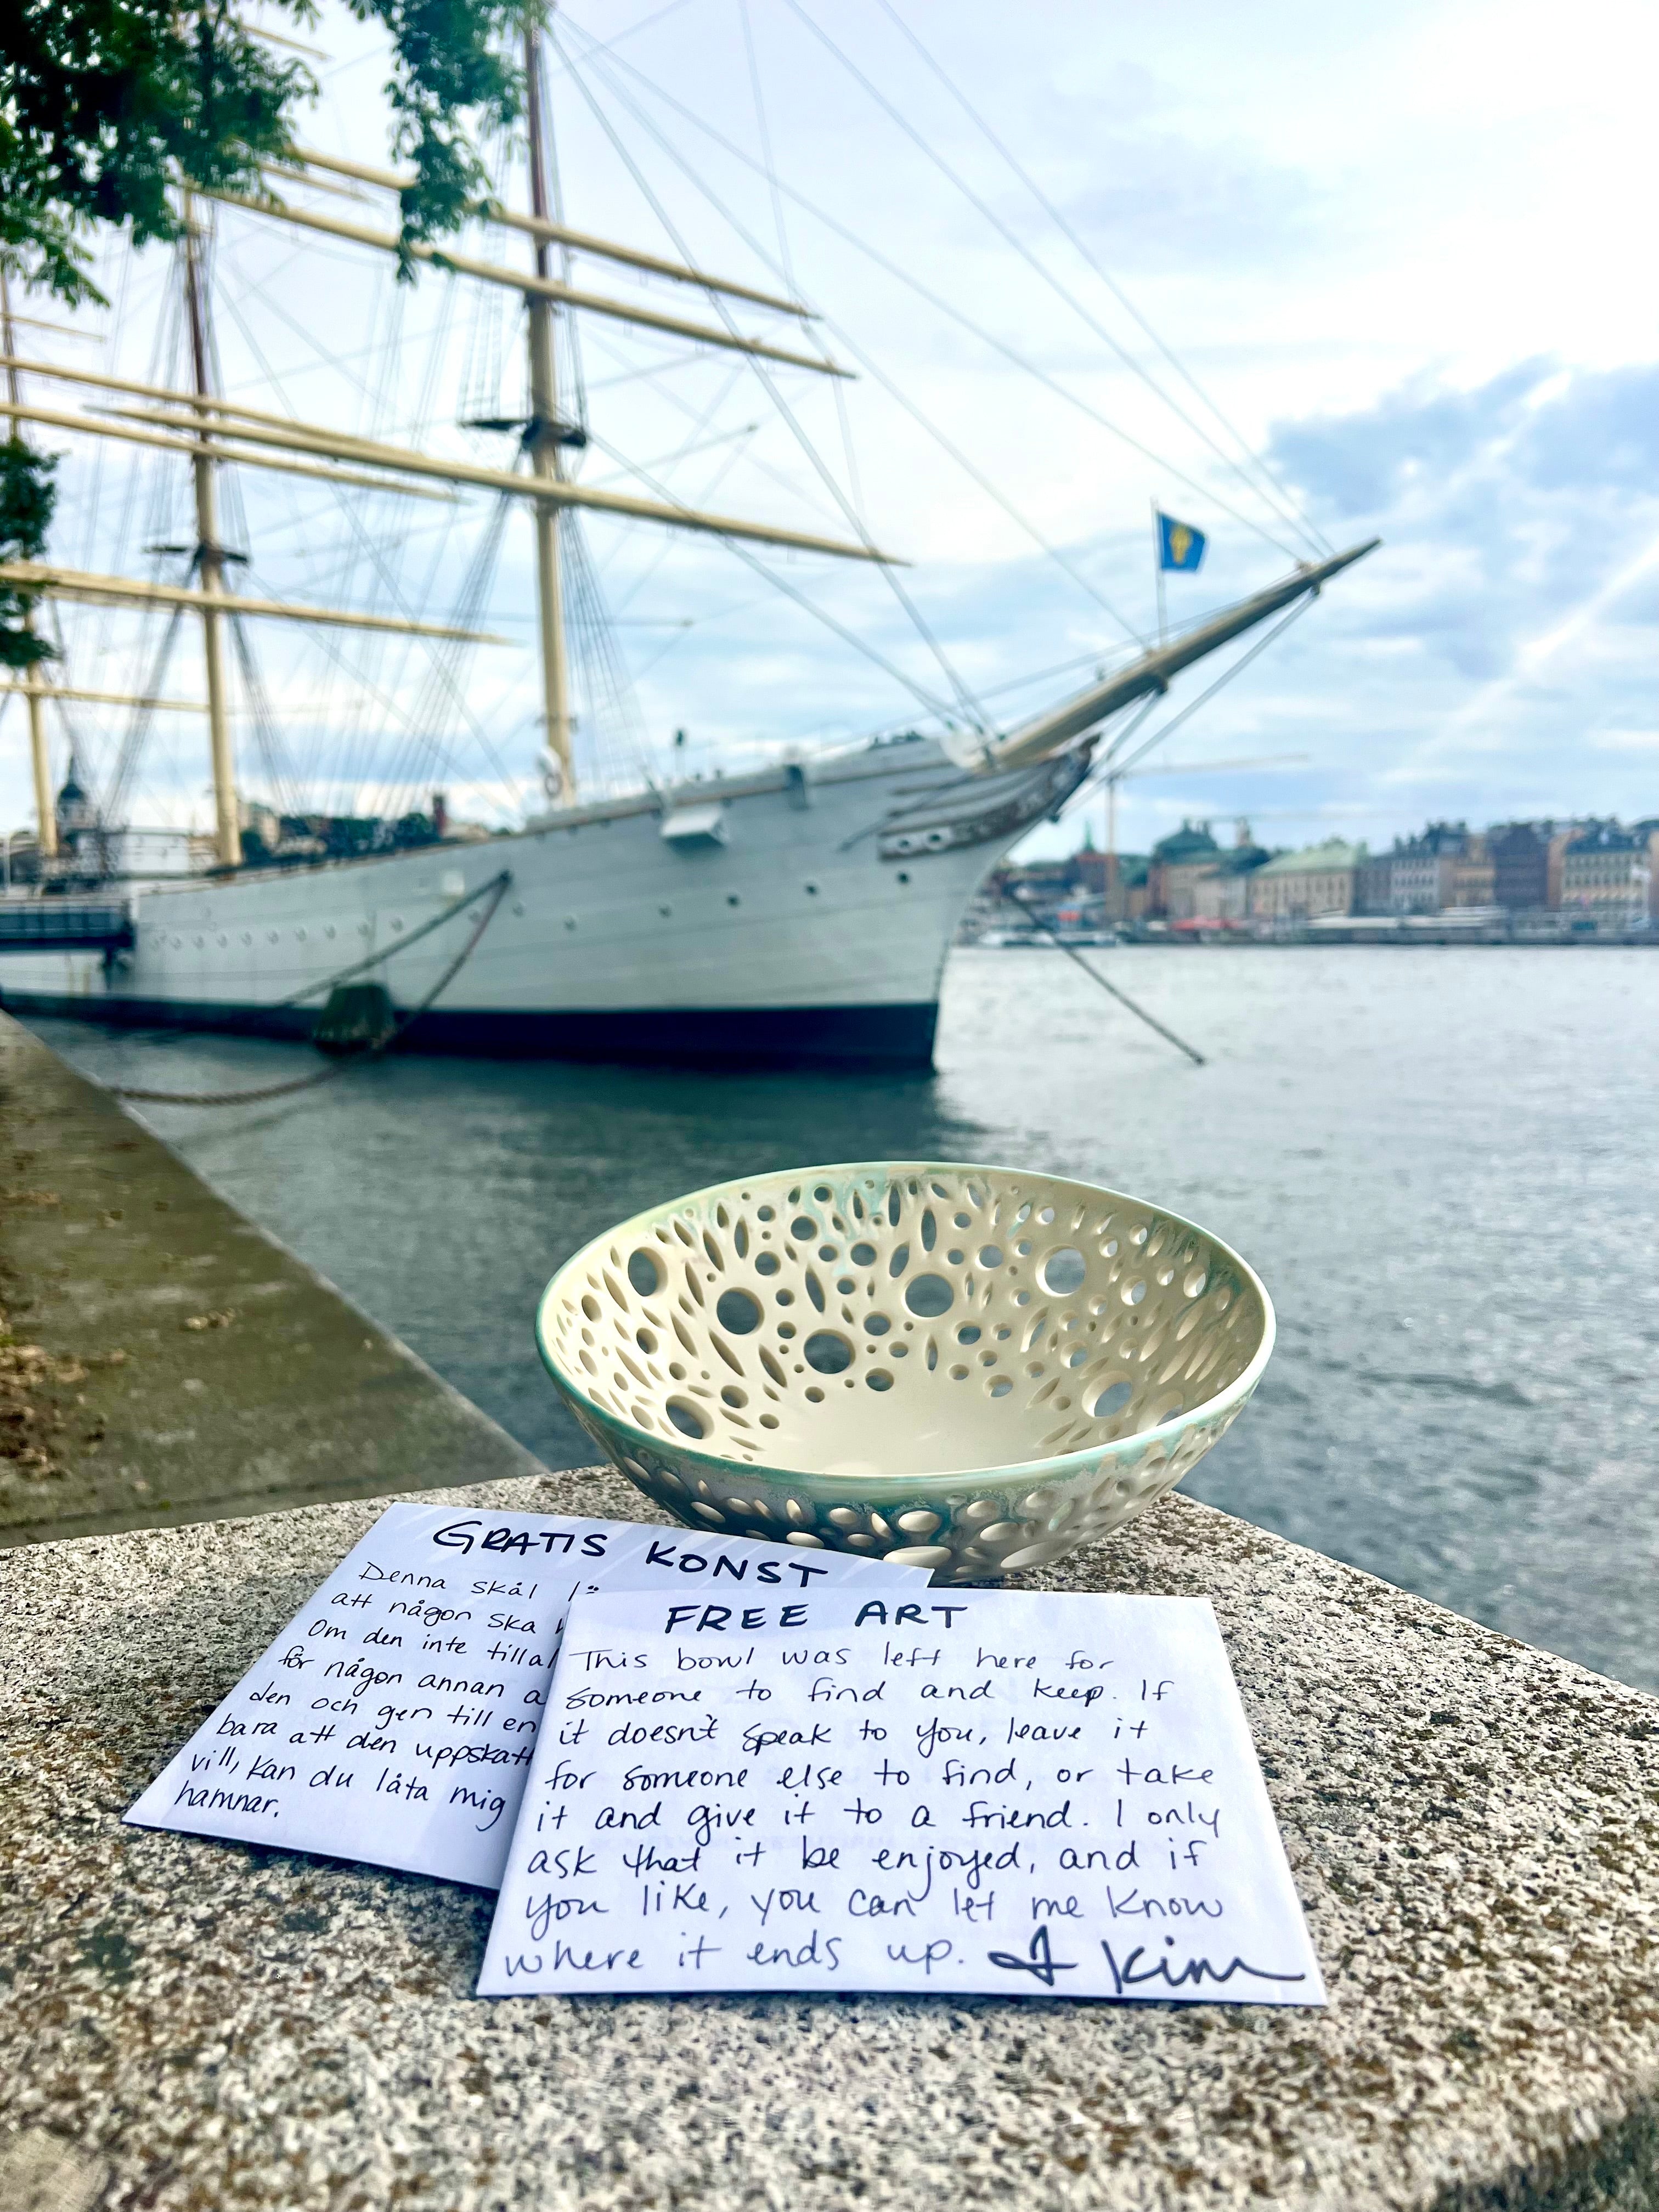 GRATIS KONST
Denna skål
att någon ska
Om den inte
för någon annan
den och ger till en
bara att den
vill, kan du låta mig
hamnar.
FREE ART
This bowl was left here for
someone to find and keep. If
it doesn't speak to you, leave it
for someone else to find, or take
it and give it to a friend. I only
ask that it be enjoyed, and if
you like, you can let me know
where it ends up. Kim